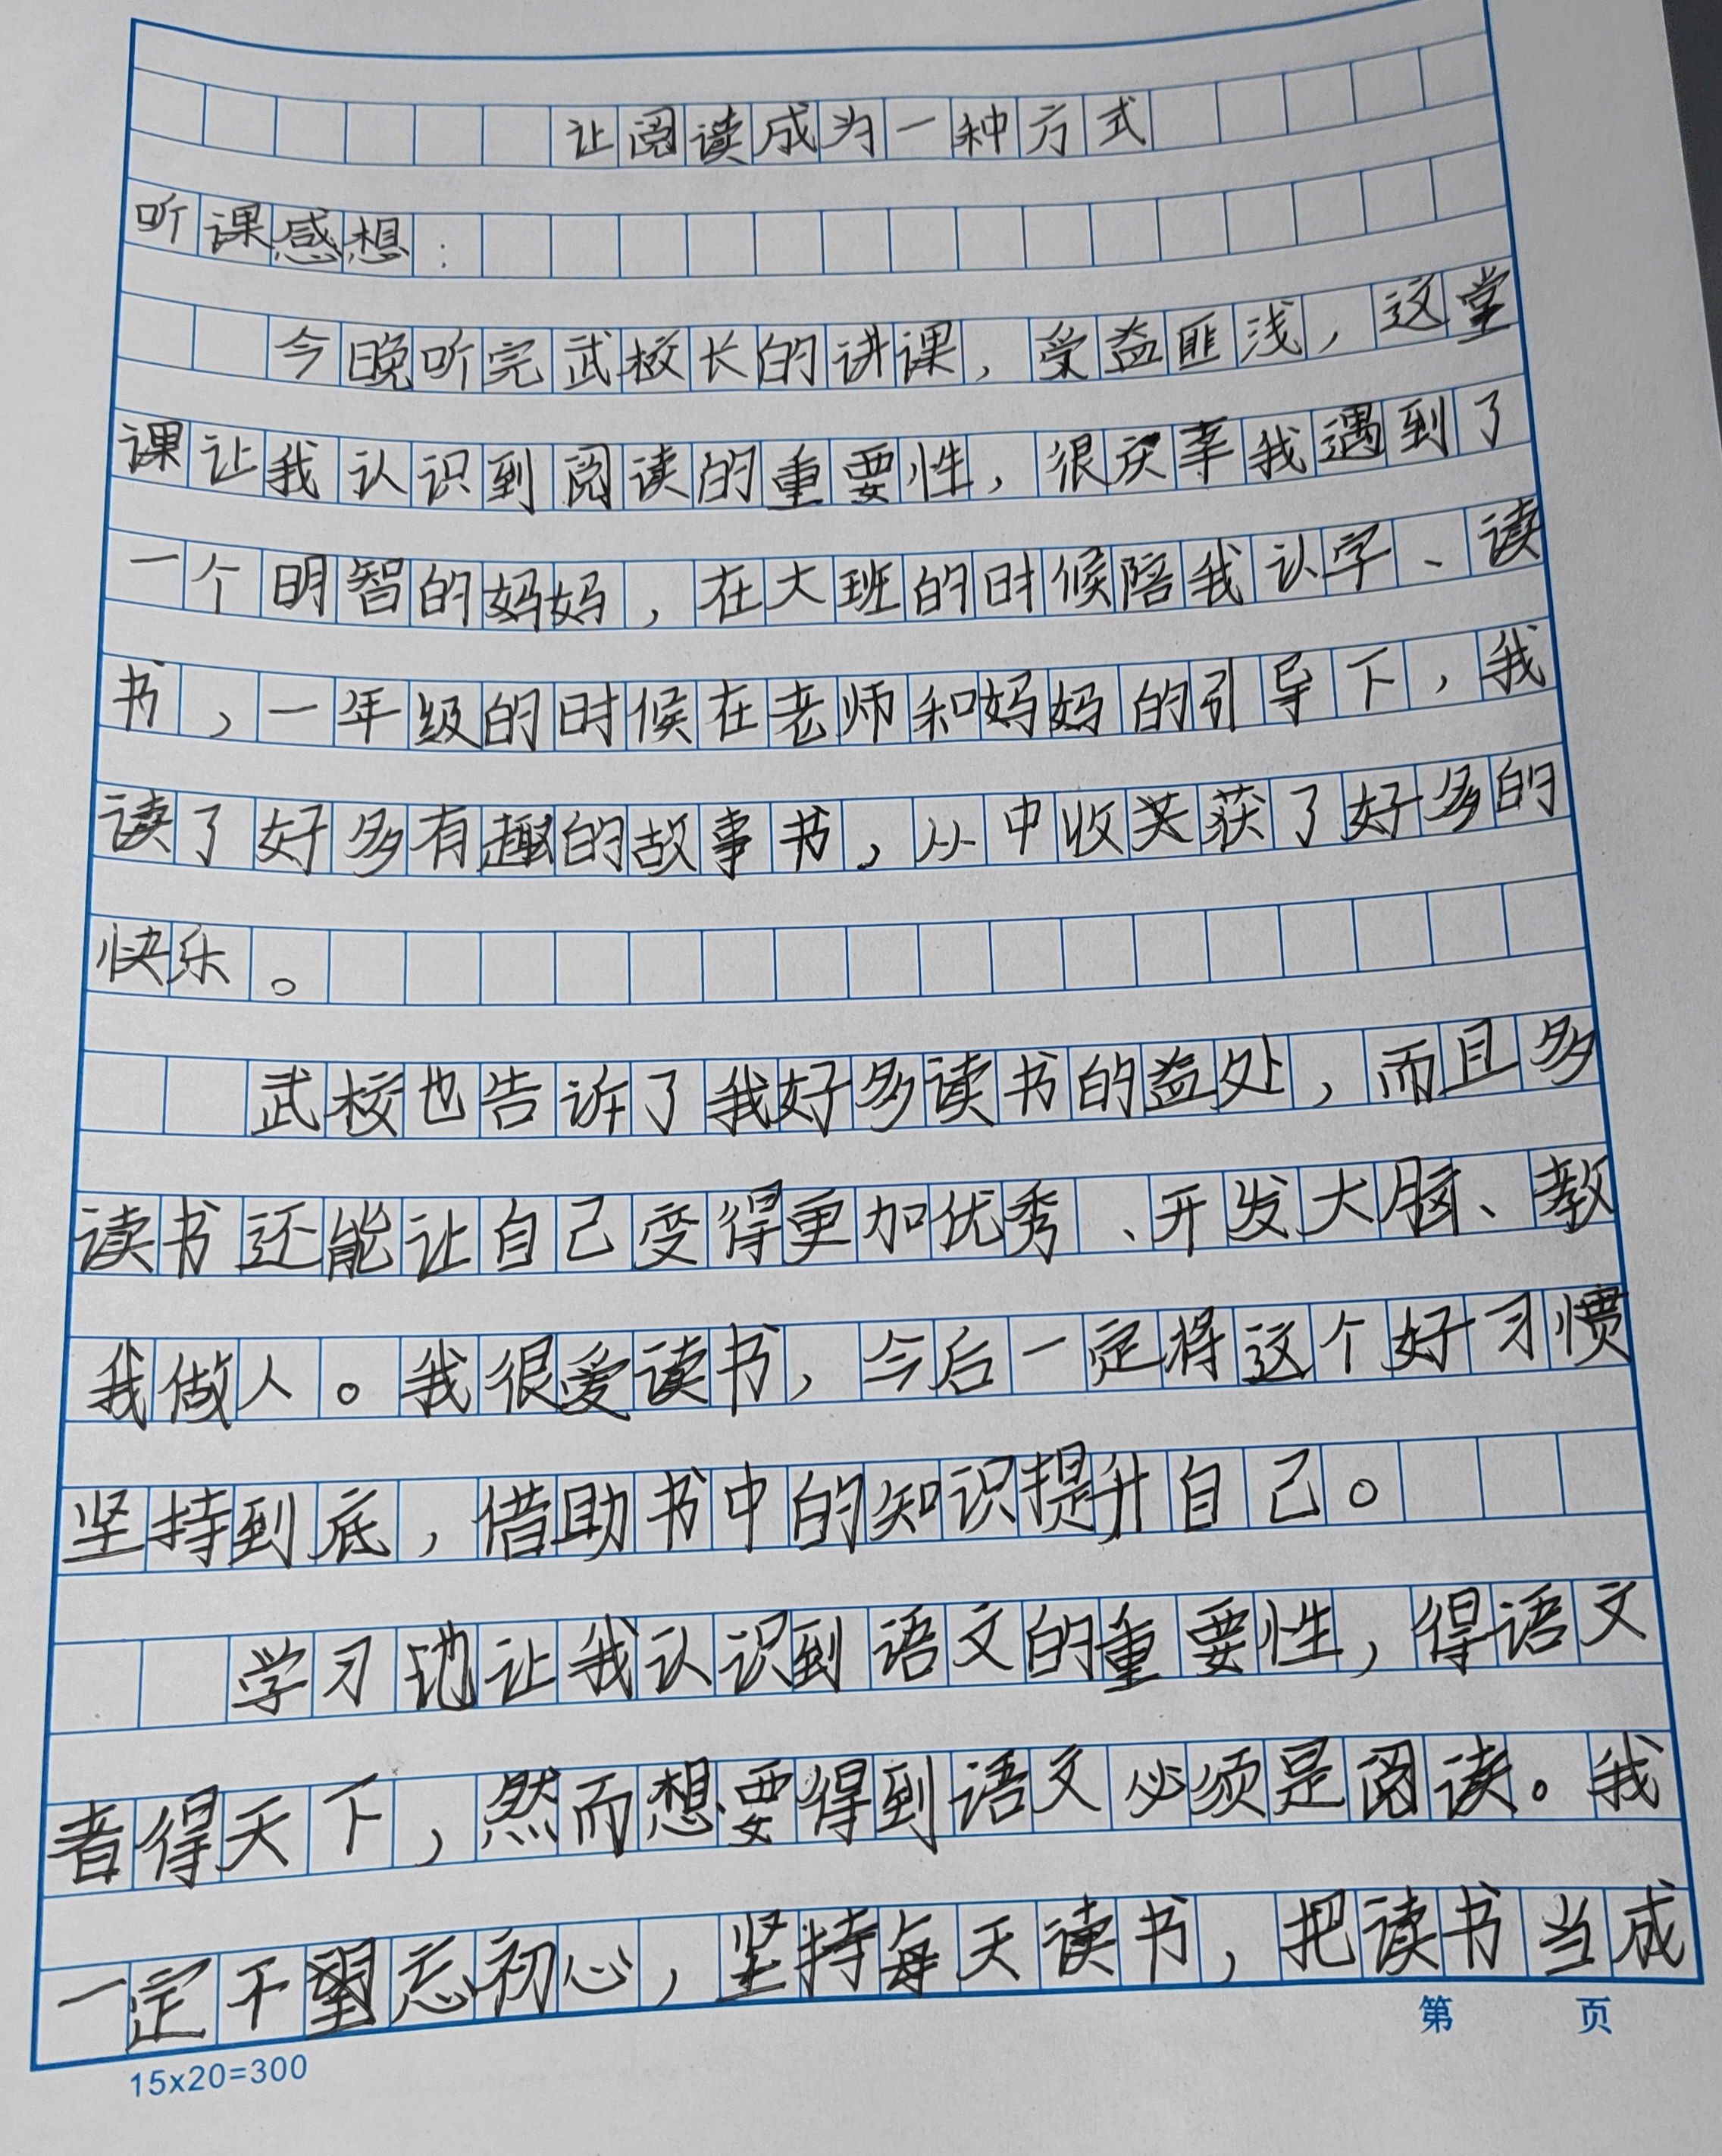 让阅读成为一种方式
听课感想：
今晚听完武校长的讲课，受益匪浅，这堂
课让我认识到阅读的重要性，很庆幸我遇到了
一个明智的妈妈，在大班的时候陪我认字、读
书，一年级的时候在老师和妈妈的引导下，我
读了好多有趣的故事书，从中收获了好多的
快乐。
武校也告诉了我好多读书的益处，而且多
读书还能让自己变得更加优秀、开发大脑、教
我做人。我很爱读书，今后一定将这个好习惯
坚持到底，借助书中的知识提升自己。
学习 让我认识到语文的重要性，得语文
者得天下，然而想要得到语文必须是阅读。我
一定不忘初心，坚持每天读书，把读书当成
第 页
15x20=300